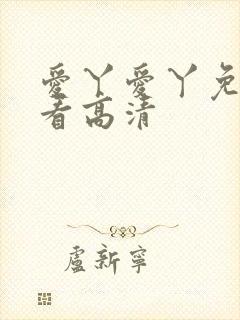 愛丫愛丫免
看高清
盧新寧